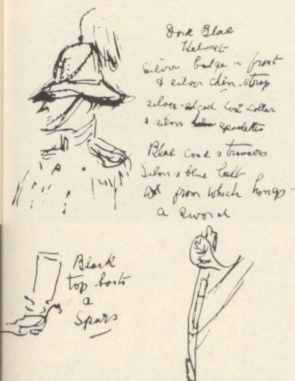 Dark Blue
Helmet
Silver badge in front
& silver chin-strap
silver-edged coat-collar
& silver epaulettes
Blue coat & trousers
Silver & blue belt
from which hangs
a sword
Black
top boots
&
Spurs